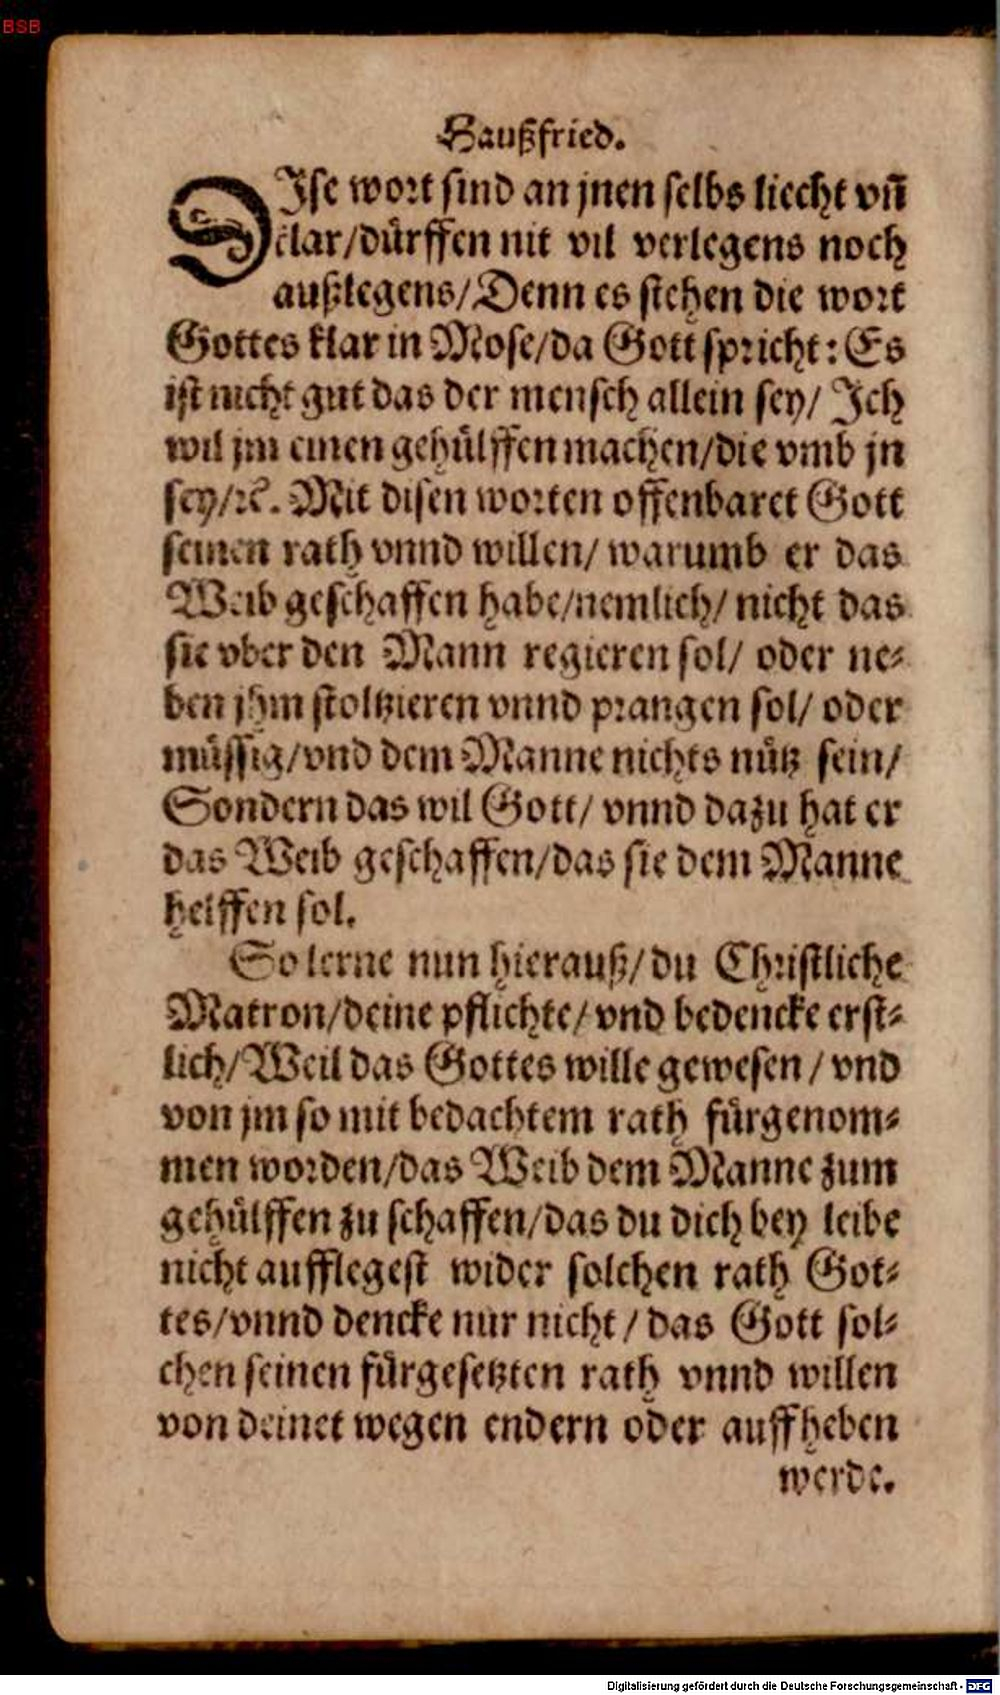 BSB
Haußfried.
DIse wort sind an jnen selbs liecht vñ
clar/dürffen nit vil verlegens noch
außlegens/Denn es stehen die wort
Gottes klar in Mose/da Gott spricht: Es
ist nicht gut das der mensch allein sey/ Ich
wil jm einen gehülffen machen/die vmb jn
sey/ꝛc. Mit disen worten offenbaret Gott
seinen rath vnnd willen/ warumb er das
Weib geschaffen habe/nemlich/ nicht das
sie vber den Mann regieren sol/ oder ne⸗
ben jhm stoltzieren vnnd prangen sol/ oder
müssig/vnd dem Manne nichts nütz sein/
Sondern das wil Gott/ vnnd dazu hat er
das Weib geschaffen/das sie dem Manne
helffen sol.
So lerne nun hierauß/du Christliche
Matron/deine pflichte/ vnd bedencke erst⸗
lich/Weil das Gottes wille gewesen / vnd
von jm so mit bedachtem rath fürgenom⸗
men worden/das Weib dem Manne zum
gehülffen zu schaffen/das du dich bey leibe
nicht aufflegest wider solchen rath Got⸗
tes/vnnd dencke nur nicht / das Gott sol⸗
chen seinen fürgesetzten rath vnnd willen
von deinet wegen endern oder auffheben
werde.
Digitalisierung gefördert durch die Deutsche Forschungsgemeinschaft - DFG